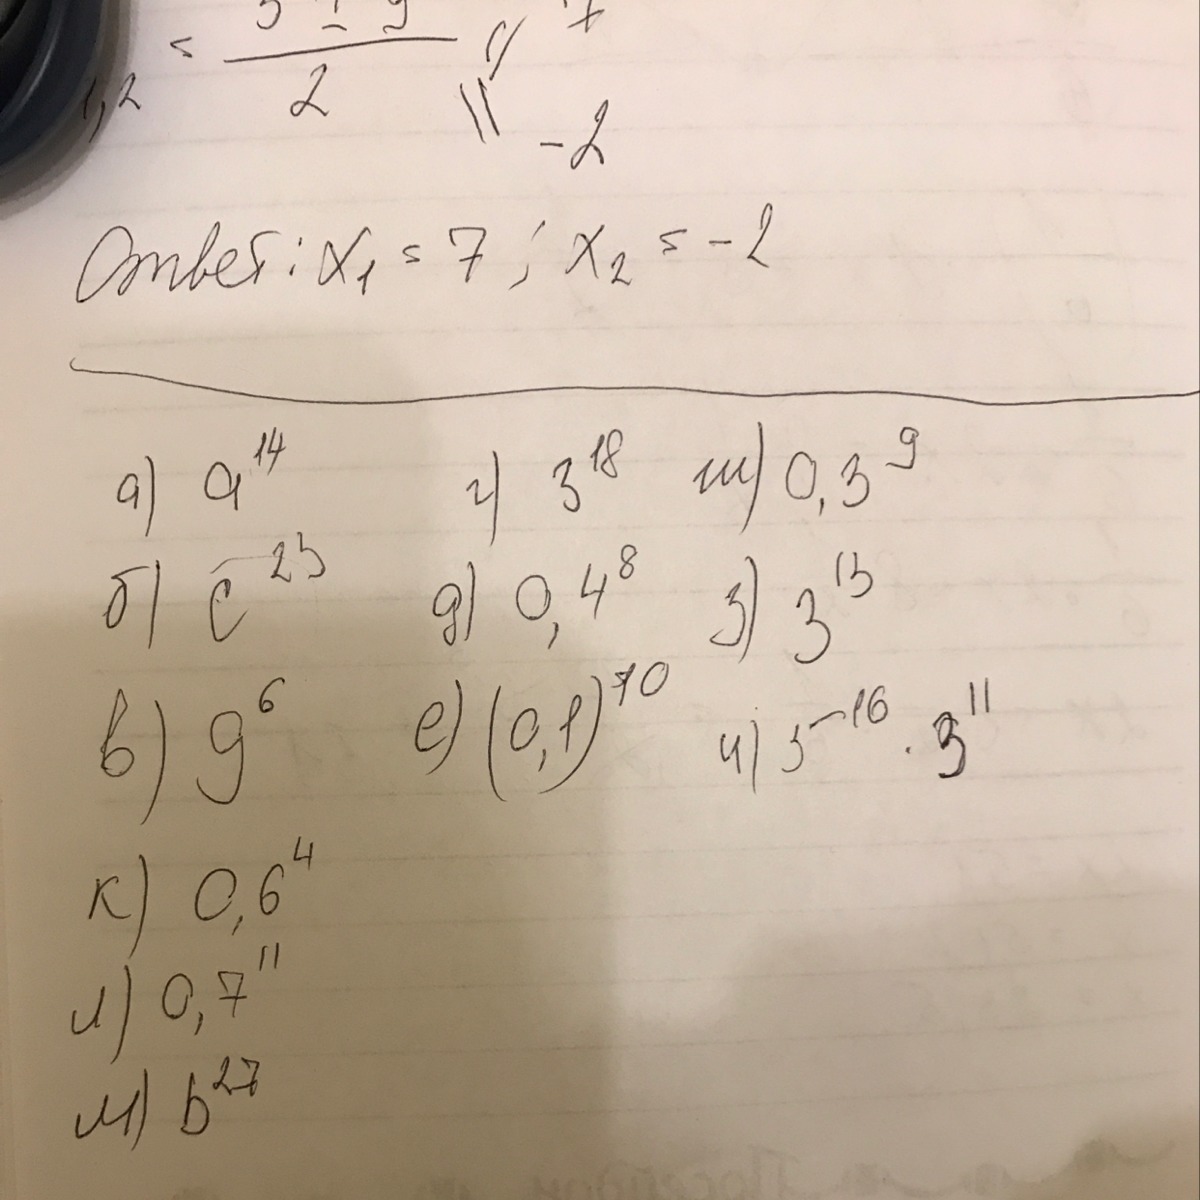 1,2 = 5 ± 9 / 2 = 7
-2
Ответ: x₁ = 7 ; x₂ = -2
а) a¹⁴ г) 3¹⁸ ж) 0,3⁹
б) c²³ д) 0,4⁸ з) 3¹³
в) g⁶ е) (0,1)⁷⁰ и) 5⁻¹⁶ · 3¹¹
к) 0,6⁴
л) 0,7¹¹
м) b²⁷